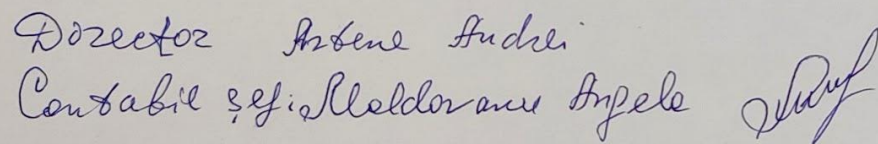 Director Artene Andrei
Contabil șef: Moldovanu Angela